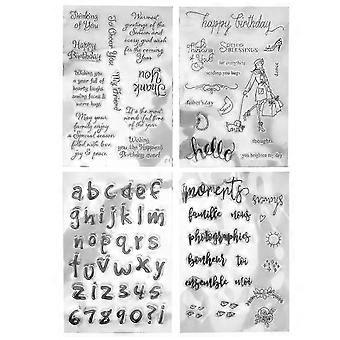 Thinking
of You
Happy
Birthday
Wishing you
a year full of
hearty laughs
May your
family enjoy
a Special
season
filled with love
joy & peace
To Cheer You
My Friend
Warmest
greetings of the
Season and
every good wish
for the coming
Year
Thank
You
It's the most
wonderful time
of the year
Wishing
you the Happiest
Birthday ever!
happy birthday
thinking
of you
BLESSINGS
for everything
sending you hugs
father's day
thoughts
hello
you brighten my day
a b c d e f
g h i j k l m
n o p q r s
t u v w x y z
1 2 3 4 5
6 7 8 9 0 ? !
moments
famille nous
photographies
bonheur toi
ensemble moi